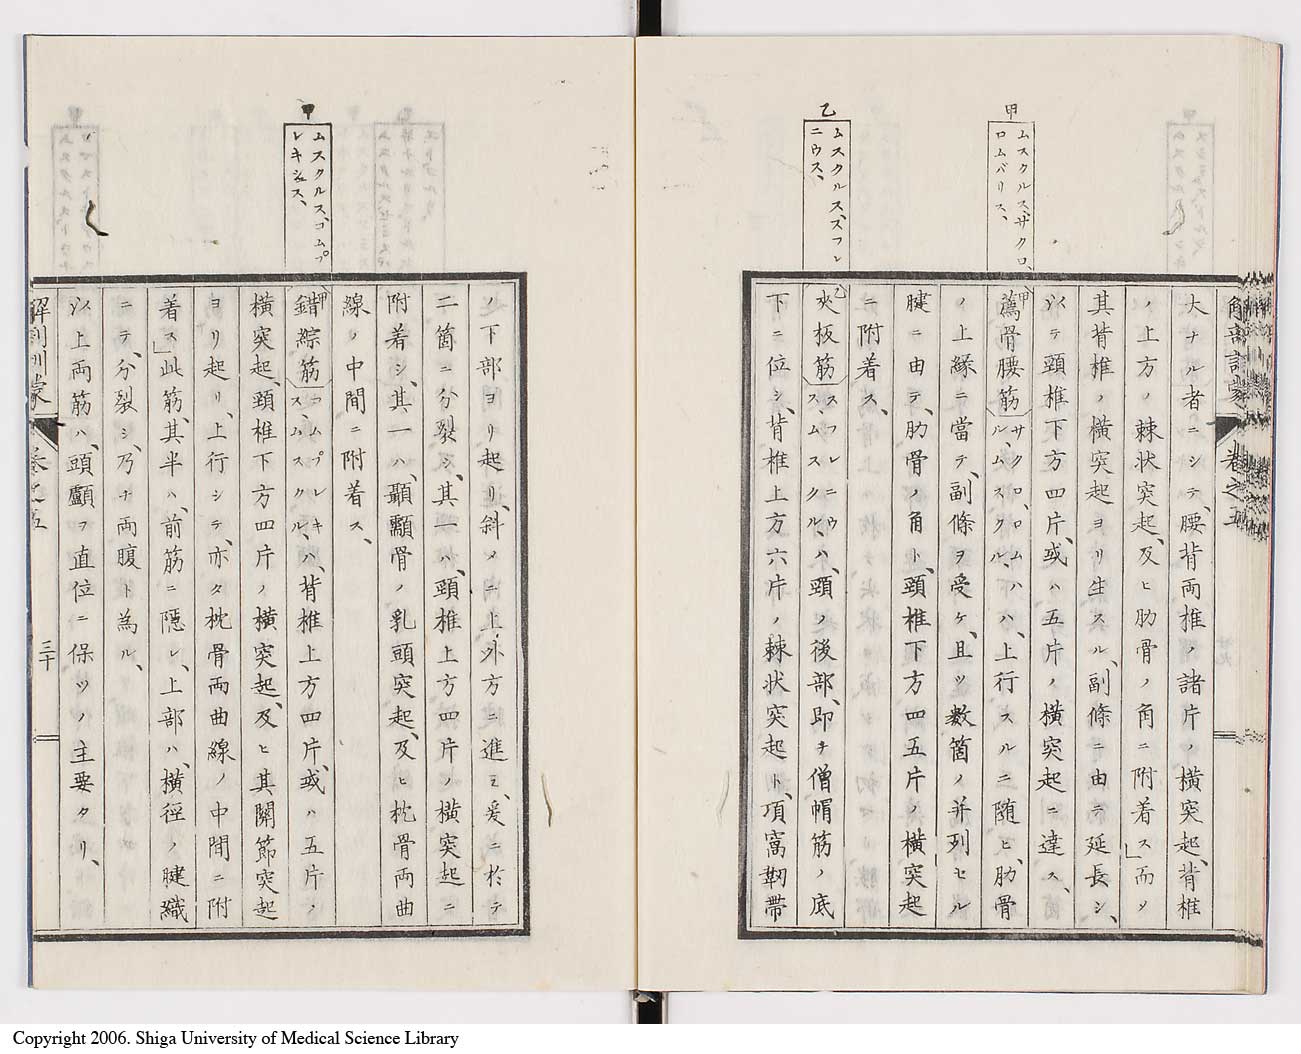 解剖訓蒙 卷之五
甲
ムスクルス、サクロ、
ロムバリス、
乙
ムスクルス、スフレ
ニウス、
大ナル者ニシテ、腰背両椎ノ諸片ノ横突起、背椎
ノ上方ノ棘状突起、及ヒ肋骨ノ角ニ附着ス」而ソ
其背椎ノ横突起ヨリ生スル、副條ニ由テ延長シ、
以テ頸椎下方四片、或ハ五片ノ横突起ニ達ス、
甲薦骨腰筋サクロ、ロムハル、ムスクル、ハ、上行スルニ随ヒ、肋骨
ノ上緣ニ當テ、副條ヲ受ケ、且ツ數箇ノ并列セル
腱ニ由テ、肋骨ノ角ト、頸椎下方四五片ノ横突起
ニ附着ス、
乙夾板筋スフレニウス、ムスクル、ハ、頸ノ後部、即チ僧帽筋ノ底
下ニ位シ、背椎上方六片ノ棘状突起ト、項窩靭帶
甲
ムスクルス、コムプ
レキシュス、
ノ下部ヨリ起リ、斜メニ上外方ニ進ミ、爰ニ於テ
二箇ニ分裂シ、其一ハ、頸椎上方四片ノ横突起ニ
附着シ、其一ハ、顳顬骨ノ乳頭突起、及ヒ枕骨両曲
線ノ中間ニ附着ス、
甲錯綜筋コムプレキス、ムスクル、ハ、背椎上方四片、或ハ五片ノ
横突起、頸椎下方四片ノ横突起、及ヒ其關節突起
ヨリ起リ、上行シテ、亦タ枕骨両曲線ノ中間ニ附
着ス」此筋、其半ハ、前筋ニ隱レ、上部ハ、横徑ノ腱織
ニテ、分裂シ、乃ナ両腹ト為ル、
以上両筋ハ、頭顱ヲ直位ニ保ツノ主要タリ、
解剖訓蒙 卷之五 三十
Copyright 2006. Shiga University of Medical Science Library